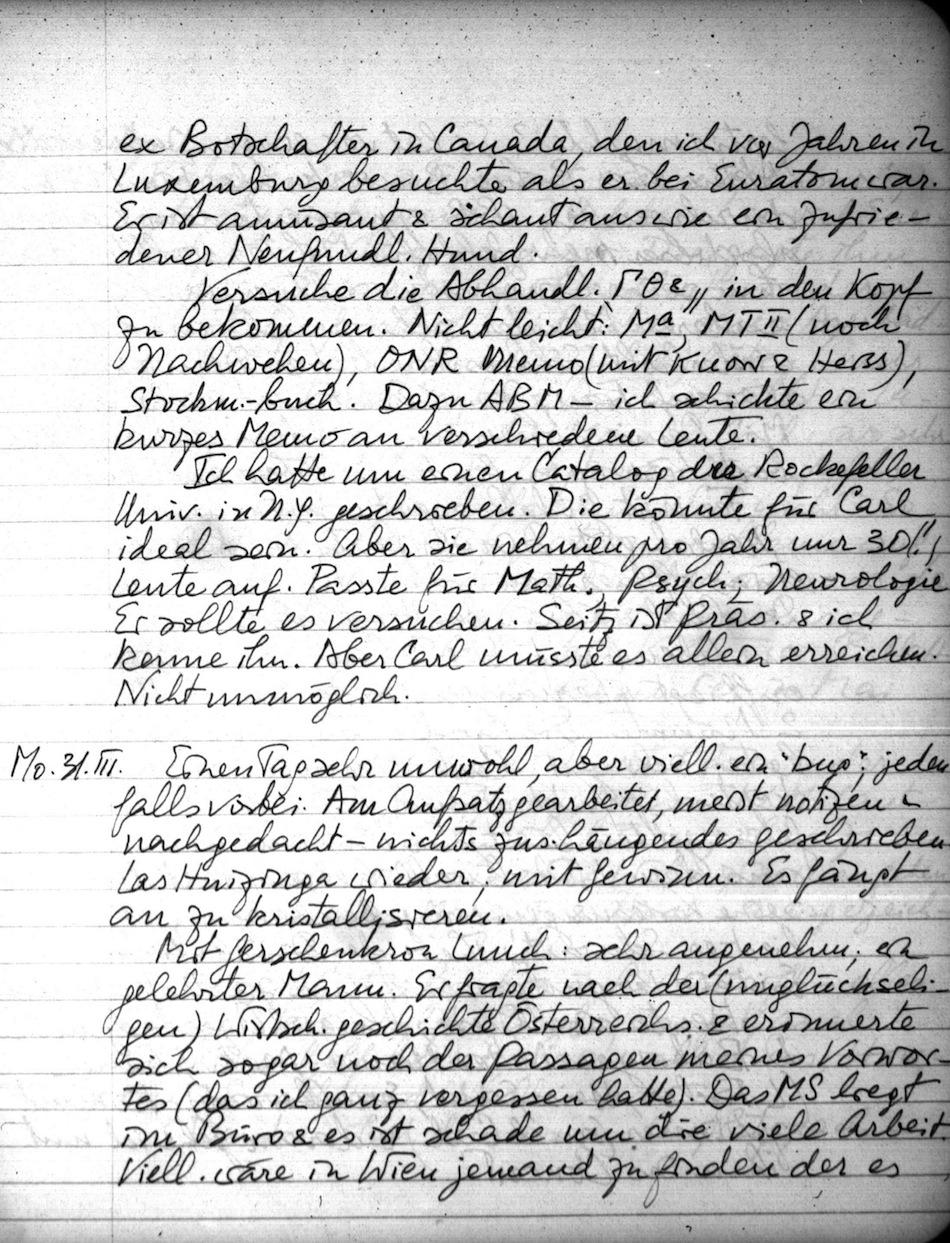 ex Botschafter in Canada, den ich vor Jahren in
Luxemburg besuchte als er bei Euratom war.
Er ist amüsant & schaut aus wie ein zufrie-
dener Neufundl. Hund.
Versuche die Abhandl. ΓΘ& „ in den Kopf
zu bekommen. Nicht leicht: Ma, MT II (noch
Nachwehen), ONR Memo (mit Knorr & Heiss),
Stockm.-buch. Dazu ABM – ich schickte ein
kurzes Memo an verschiedene Leute.
Ich hatte um einen Catalog der Rockefeller
Univ. in N.Y. geschrieben. Die könnte für Carl
ideal sein. Aber sie nehmen pro Jahr nur 30(!)
Leute auf. Passte für Math., Psych., Neurologie
Er sollte es versuchen. Seitz ist Präs. & ich
kenne ihn. Aber Carl müsste es allein erreichen.
Nicht unmöglich.
Mo. 31. III. Einen Tag sehr unwohl, aber viell. ein "bug"; jeden
falls vorbei. Am Aufsatz gearbeitet, meist notizen &
nachgedacht – nichts zus.hängendes geschrieben
Las Huizinga wieder, mit Gewinn. Es fängt
an zu kristallisieren.
Mit Gerschenkron Lunch: sehr angenehm; ein
gelehrter Mann. Er fragte nach der (unglücksli-
gen) Wirtsch. geschichte Österreichs. & erinnerte
sich sogar noch der Passagen meines Vorwor-
tes (das ich ganz vergessen hatte). Das MS liegt
im Büro & es ist schade um die viele Arbeit
Viell. wäre in Wien jemand zu finden der es